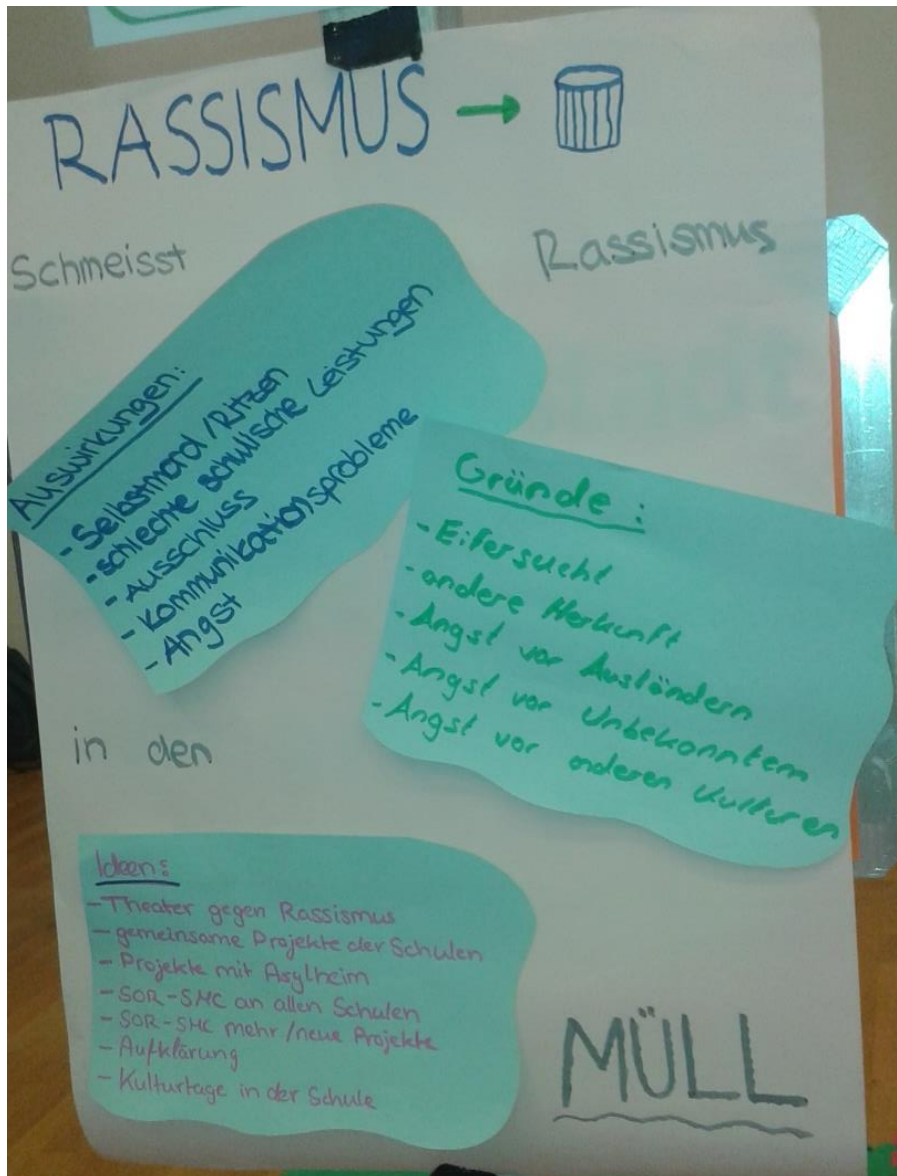 RASSISMUS →
Schmeisst Rassismus
Auswirkungen:
- Selbstmord / Ritzen
- schlechte schulische Leistungen
- Ausschluss
- Kommunikationsprobleme
- Angst
Gründe :
- Eifersucht
- andere Herkunft
- Angst vor Ausländern
- Angst vor Unbekanntem
- Angst vor anderen Kulturen
in den
Ideen:
- Theater gegen Rassismus
- gemeinsame Projekte der Schulen
- Projekte mit Asylheim
- SOR-SMC an allen Schulen
- SOR-SMC mehr / neue Projekte
- Aufklärung
- Kulturtage in der Schule
MÜLL